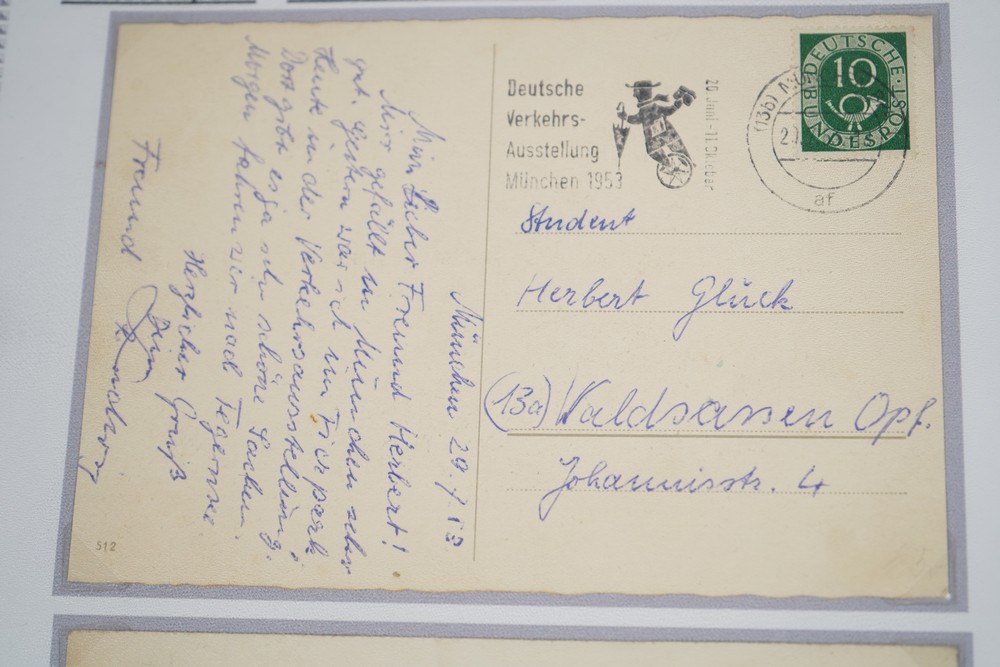 München 29.7.53.
Mein Lieber Freund Herbert!
Mir gefällt in München sehr
gut. Gestern war ich im Tierpark
Heute in der Verkehrsausstellung.
Dort gibt es ja sehr schöne Sachen.
Morgen fahren wir nach Tegernsee.
Herzlicher Gruß
Dein
Freund
512
Deutsche
Verkehrs-
Ausstellung
München 1953
20 Juni-11 Oktober
(13b)
af
DEUTSCHE
BUNDESPOST
10
Student
Herbert Glück
(13a) Waldsassen Opf.
Johannisstr. 4